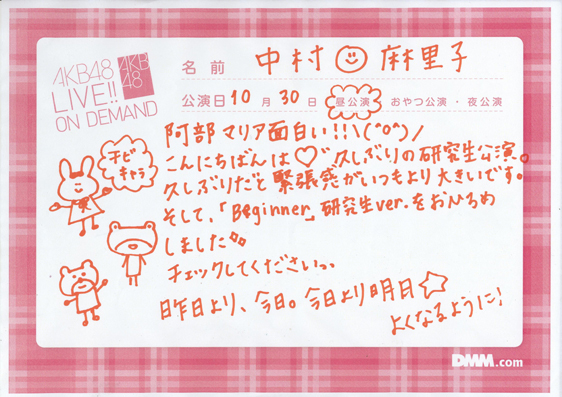 AKB48
LIVE!!
ON DEMAND
AKB
48
名前 中村 麻里子
公演日 10月30日 昼公演・おやつ公演・夜公演
阿部マリア面白い!!\(^o^)/
こんにちばんは♡゛久しぶりの研究生公演。
久しぶりだと緊張感がいつもより大きいです。
そして、「Beginner」研究生ver.をおひろめ
しました。
チェックしてくださいっ。
昨日より、今日。今日より明日☆
よくなるように!
チビ
キャラ
DMM.com